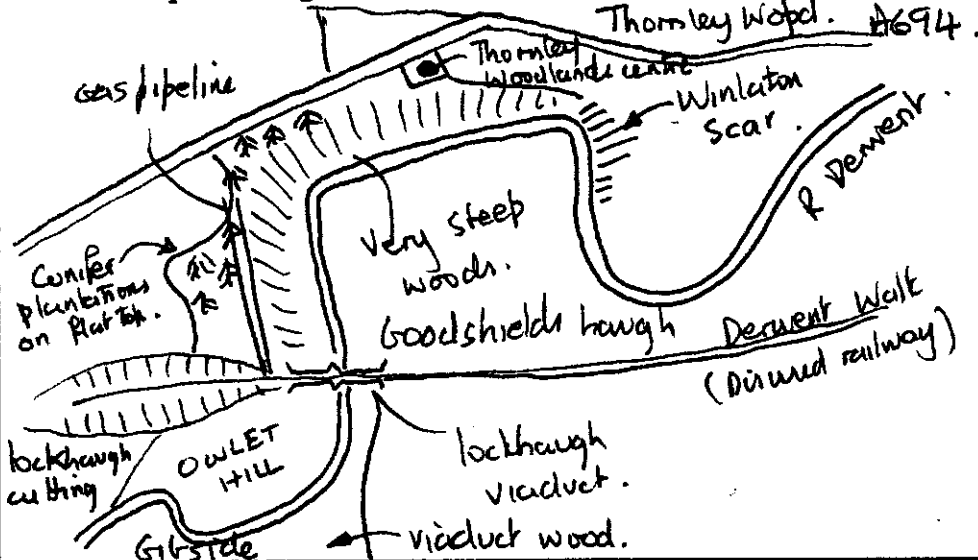 Thornley Wood.
A694.
Thornley
Woodlands centre
Gas pipeline
Winlaton
Scar.
R Derwent.
Very steep
woods.
Conifer
plantations
on flat top.
Goodshields haugh
Derwent Walk
(Disused railway)
lockhaugh
cutting
OWLET
HILL
lockhaugh
viaduct.
viaduct wood.
Gibside